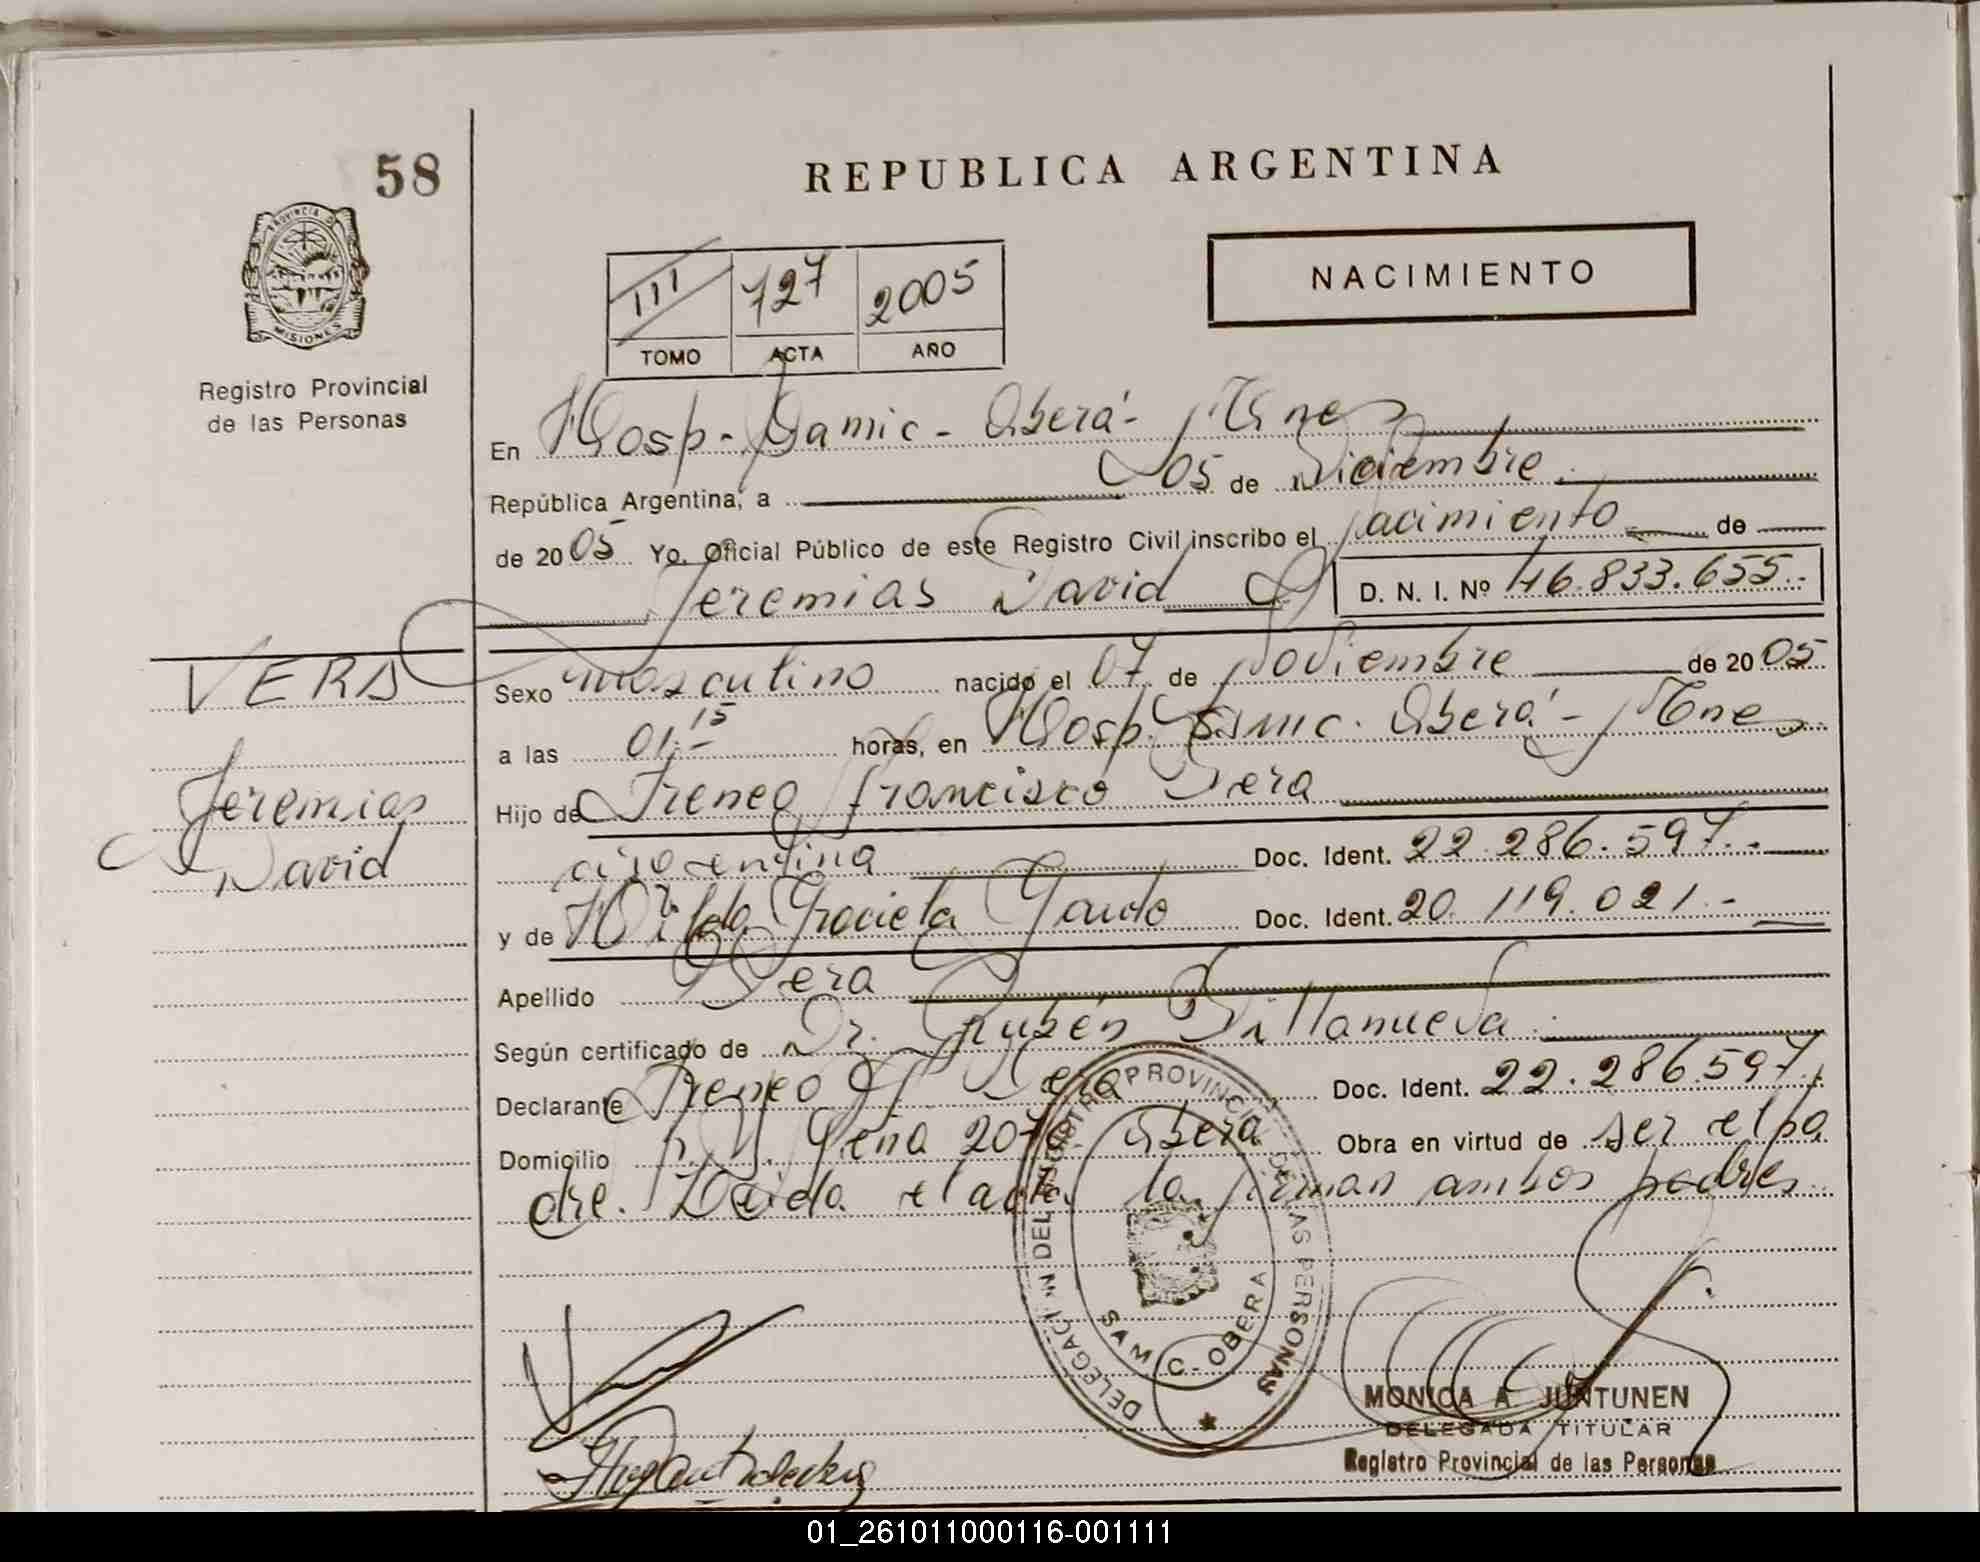 58
REPUBLICA ARGENTINA
PROVINCIA D
MISIONES
Registro Provincial
de las Personas
III 127 2005
TOMO ACTA AÑO
NACIMIENTO
En Hosp. Samic - Oberá - Mnes
República Argentina, a 05 de Diciembre
de 2005 Yo, Oficial Público de este Registro Civil inscribo el nacimiento de
Jeremias David D. N. I. Nº 46.833.655.-
VERA
Jeremias
David
Sexo masculino nacido el 07 de Noviembre de 2005
a las 01:15 horas, en Hosp. Samic. Oberá - Mnes
Hijo de Ireneo Francisco Vera
argentina Doc. Ident. 22.286.597.-
y de Hilda Graciela Doc. Ident. 20.119.021.-
Apellido Vera
Según certificado de Dr. Rubén Villanueva.
Declarante Ireneo F. Vera Doc. Ident. 22.286.597.
Domicilio Peña Oberá Obra en virtud de ser el pa
dre. Leida el acta la firman ambos padres
DELEGACION DEL REGISTRO PROVINCIAL DE LAS PERSONAS
SAMIC - OBERA
MONICA A. JUNTUNEN
DELEGADA TITULAR
Registro Provincial de las Personas
01_261011000116-001111